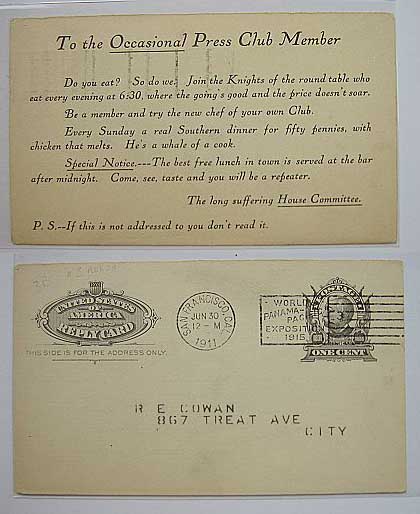 To the Occasional Press Club Member
Do you eat? So do we. Join the Knights of the round table who
eat every evening at 6:30, where the going's good and the price doesn't soar.
Be a member and try the new chef of your own Club.
Every Sunday a real Southern dinner for fifty pennies, with
chicken that melts. He's a whale of a cook.
Special Notice.---The best free lunch in town is served at the bar
after midnight. Come, see, taste and you will be a repeater.
The long suffering House Committee.
P. S.--If this is not addressed to you don't read it.
UNITED STATES
OF
AMERICA
REPLY CARD
THIS SIDE IS FOR THE ADDRESS ONLY.
SAN FRANCISCO, CAL.
JUN 30
12-M
1911
WORLD
PANAMA-
PAC
EXPOSITION
1915
ONE CENT
R E COWAN
867 TREAT AVE
CITY